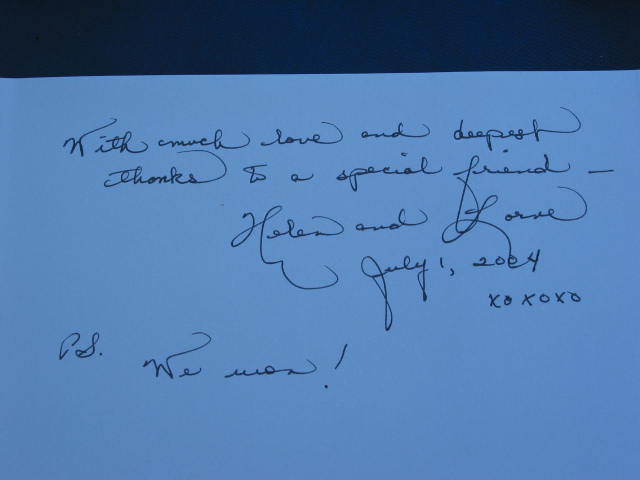 With much love and deepest
thanks to a special friend —
Helen and Lorne
July 1, 2004
xoxoxo
P.S. We won!